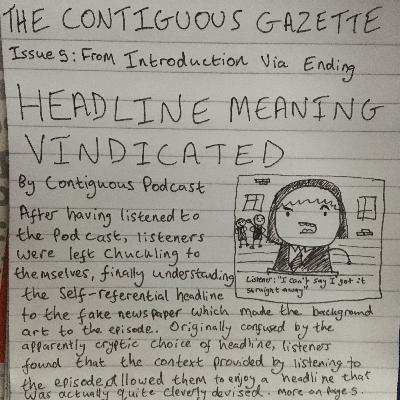 THE CONTIGUOUS GAZETTE
Issue 5: From Introduction Via Ending
HEADLINE MEANING
VINDICATED
By Contiguous Podcast
After having listened to
the Podcast, listeners
were left chuckling to
themselves, finally understanding
the self-referential headline
to the fake newspaper which made the background
art to the episode. Originally confused by the
apparently cryptic choice of headline, listeners
found that the context provided by listening to
the episode allowed them to enjoy a headline that
was actually quite cleverly devised. More on Page 5.
Listener: "I can't say I got it
straight away"